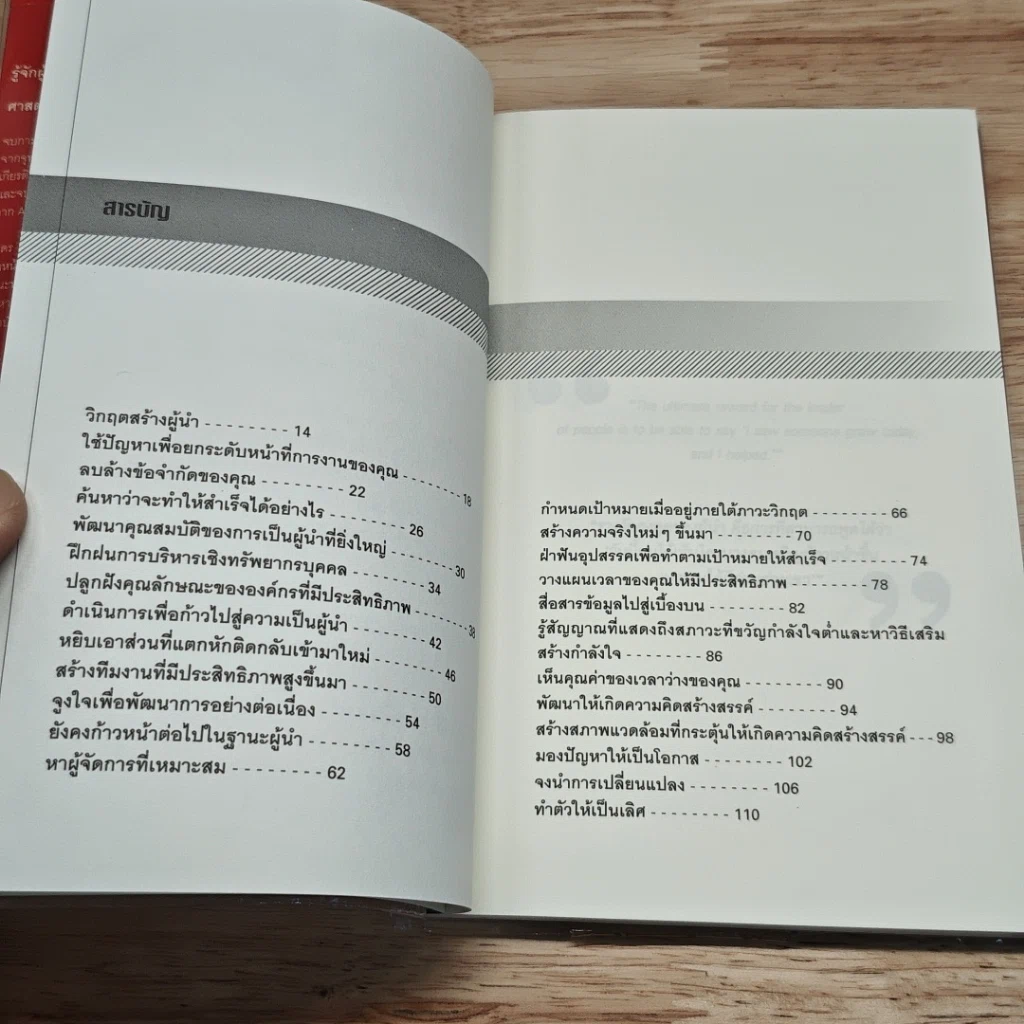 สารบัญ
วิกฤตสร้างผู้นำ - - - - - - - - 14
ใช้ปัญหาเพื่อยกระดับหน้าที่การงานของคุณ - - - - - - - - 18
ลบล้างข้อจำกัดของคุณ - - - - - - - - 22
ค้นหาว่าจะทำให้สำเร็จได้อย่างไร - - - - - - - - 26
พัฒนาคุณสมบัติของการเป็นผู้นำที่ยิ่งใหญ่ - - - - - - - - 30
ฝึกฝนการบริหารเชิงทรัพยากรบุคคล - - - - - - - - 34
ปลูกฝังคุณลักษณะขององค์กรที่มีประสิทธิภาพ - - - - - - - - 38
ดำเนินการเพื่อก้าวไปสู่ความเป็นผู้นำ - - - - - - - - 42
หยิบเอาส่วนที่แตกหักติดกลับเข้ามาใหม่ - - - - - - - - 46
สร้างทีมงานที่มีประสิทธิภาพสูงขึ้นมา - - - - - - - - 50
จูงใจเพื่อพัฒนาการอย่างต่อเนื่อง - - - - - - - - 54
ยังคงก้าวหน้าต่อไปในฐานะผู้นำ - - - - - - - - 58
หาผู้จัดการที่เหมาะสม - - - - - - - - 62
กำหนดเป้าหมายเมื่ออยู่ภายใต้ภาวะวิกฤต - - - - - - - - 66
สร้างความจริงใหม่ๆ ขึ้นมา - - - - - - - - 70
ฝ่าฟันอุปสรรคเพื่อทำตามเป้าหมายให้สำเร็จ - - - - - - - - 74
วางแผนเวลาของคุณให้มีประสิทธิภาพ - - - - - - - - 78
สื่อสารข้อมูลไปสู่เบื้องบน - - - - - - - - 82
รู้สัญญาณที่แสดงถึงสภาวะที่ขวัญกำลังใจต่ำและหาวิธีเสริม
สร้างกำลังใจ - - - - - - - - 86
เห็นคุณค่าของเวลาว่างของคุณ - - - - - - - - 90
พัฒนาให้เกิดความคิดสร้างสรรค์ - - - - - - - - 94
สร้างสภาพแวดล้อมที่กระตุ้นให้เกิดความคิดสร้างสรรค์ - - - 98
มองปัญหาให้เป็นโอกาส - - - - - - - - 102
จงนำการเปลี่ยนแปลง - - - - - - - - 106
ทำตัวให้เป็นเลิศ - - - - - - - - 110